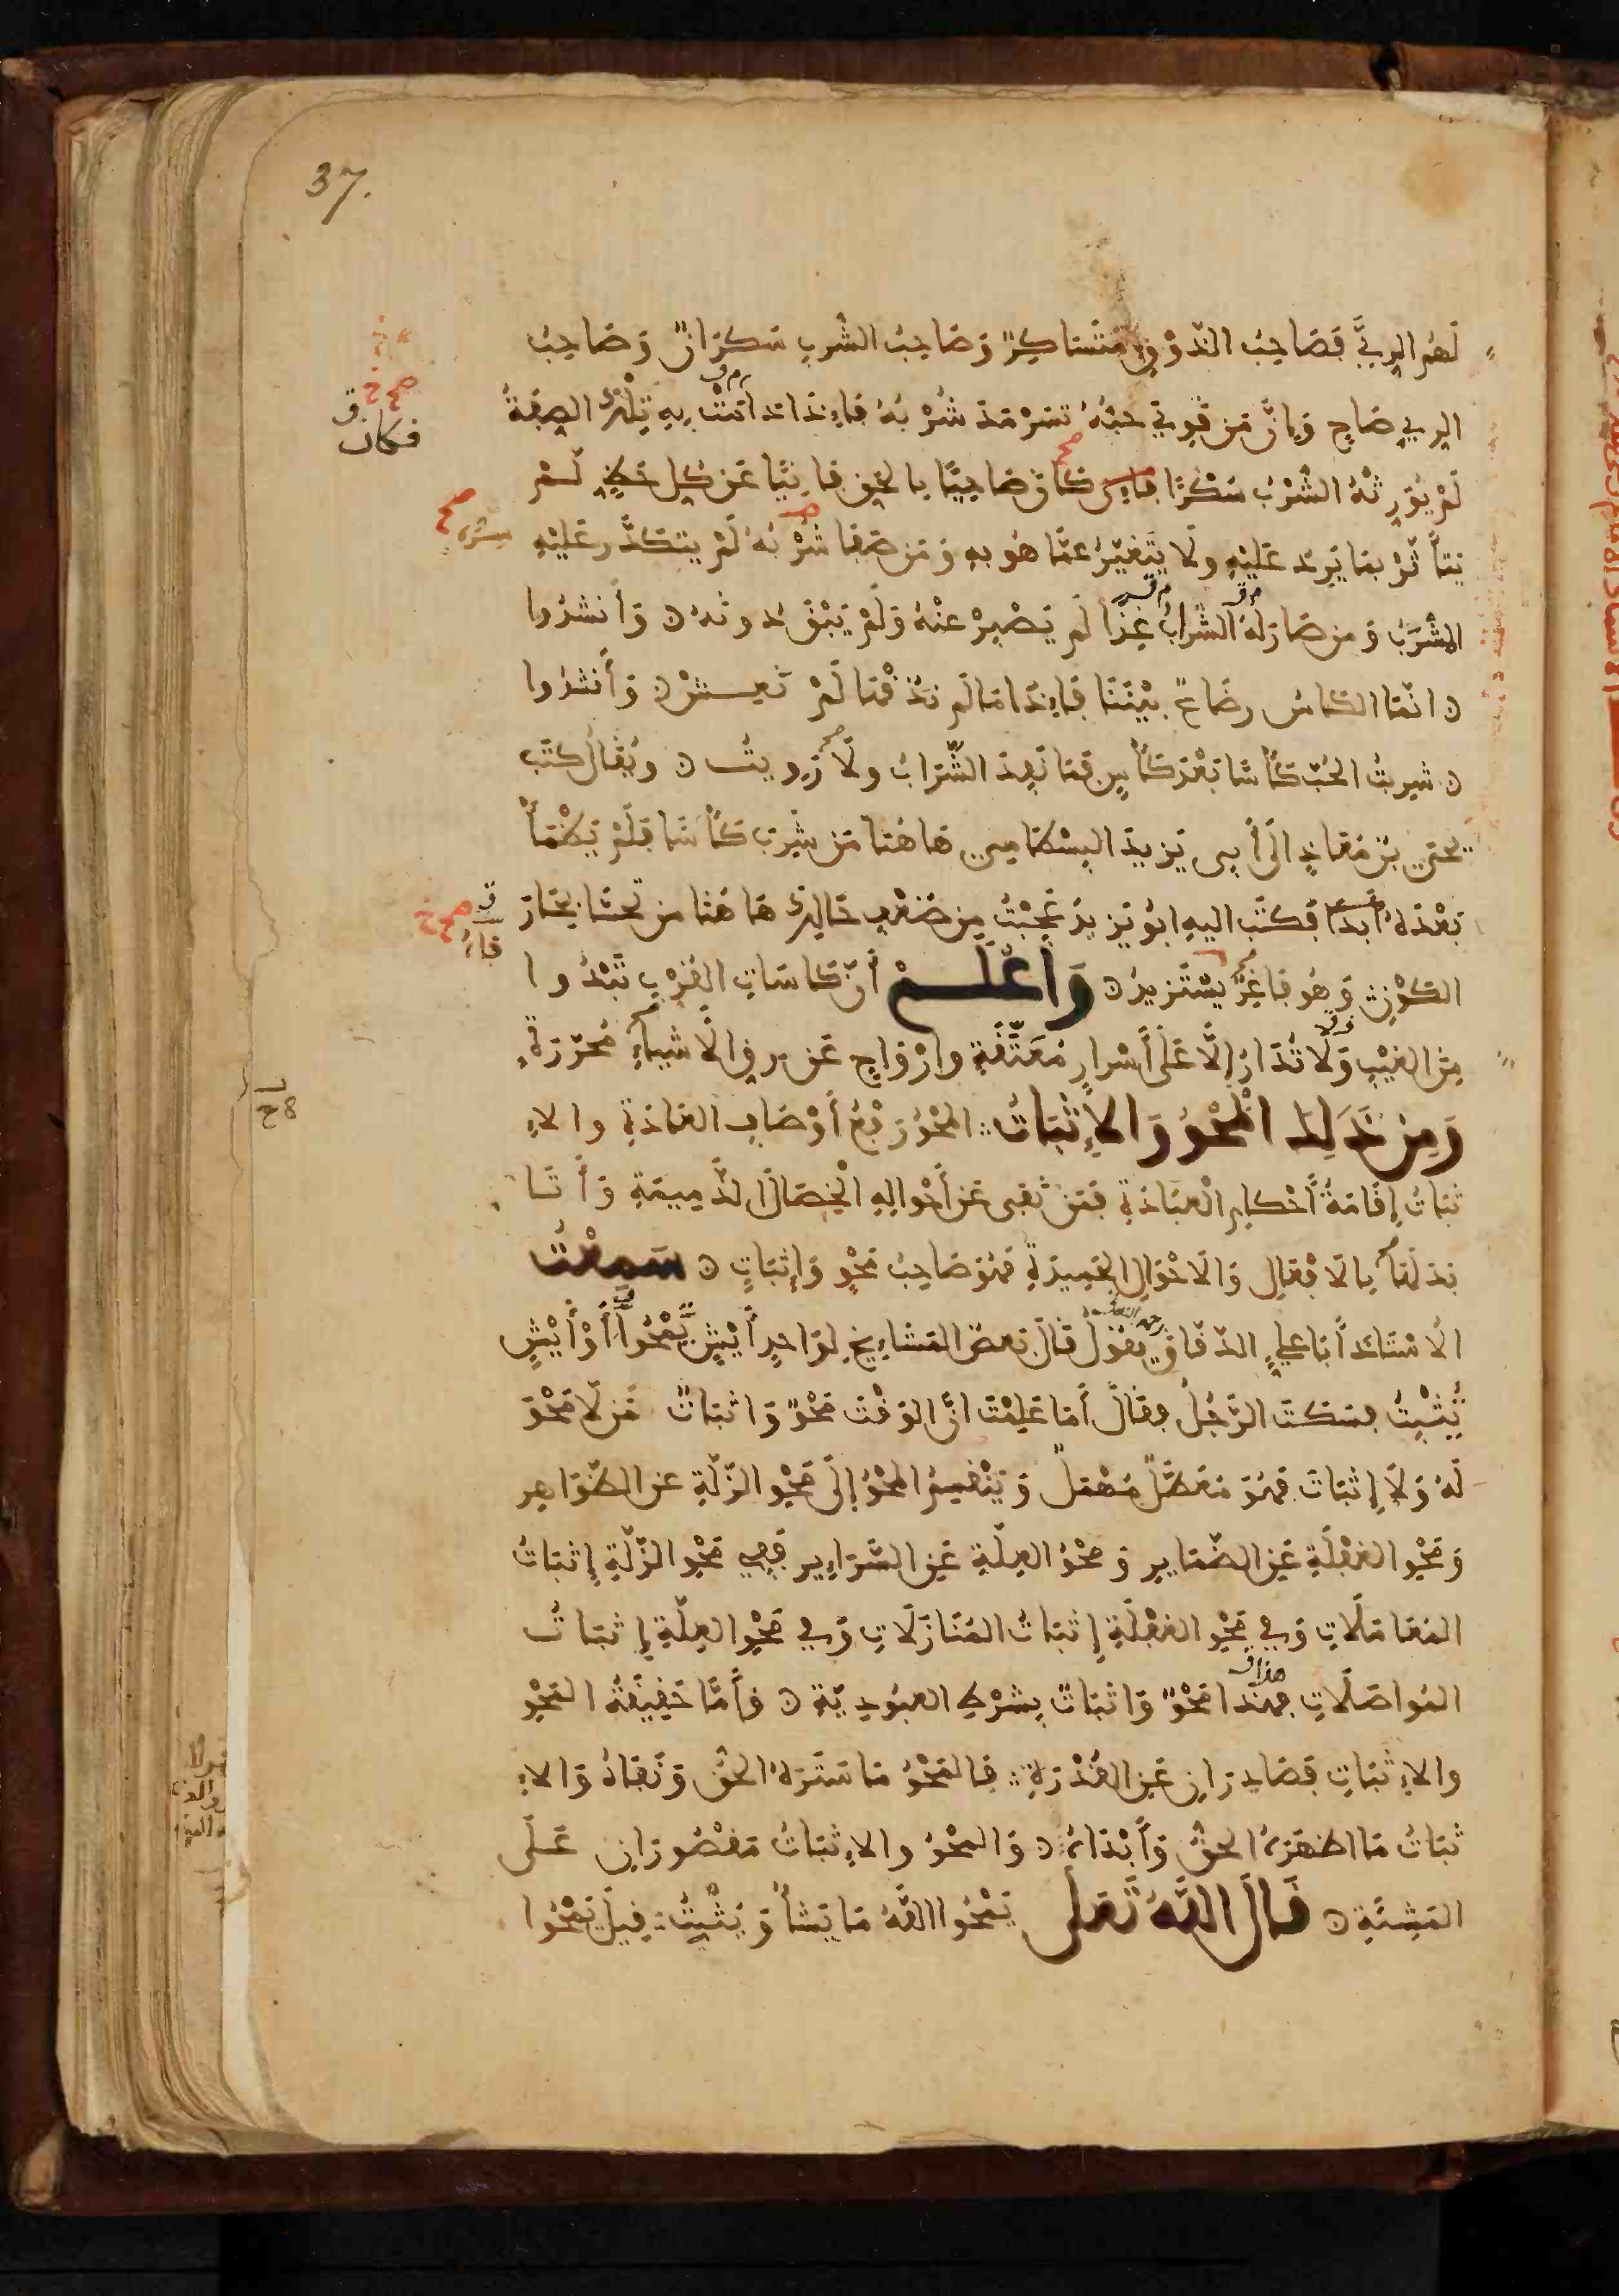 37.
لَهُم الرِيُّ فَصَاحِبُ الذَّوْقِ مُتَسَاكِرٌ وَصَاحِبُ الشُّربِ سَكرَانٌ وَصَاحِبُ
الرِيِّ صَاحٍ وَإِنَّ مَن قَوِيَ حُبُّهُ تَسَرْمَدَ شُرْبُهُ فَإِذَا دَامَتْ بِهِ تِلْكَ الصِفَةُ
لَمْ يُورِثْهُ الشُّرْبُ سُكْرًا فَإِن كَانَ صَاحِيًا بِالحَقِّ فَانِيًا عَن كُلِّ حَظٍّ لَمْ
فكان
يَتَأَثَّرْ بِمَا يَرِدُ عَلَيْهِ ولَا يَتَغَيَّرُ عَمَّا هُو بِهِ وَمَن صَفَا شُرْبُهُ لَمْ يَتَكَدَّر عَلَيْهِ
سِرُّه صح
الشُّرْبُ وَمن صَارَ لَهُ الشَّرَابُ غِذًا لَم يَصْبِرْ عَنْهُ وَلَمْ يَبْقَ دُونَهُ ۞ وَأَنشدُوا
۞ انّمَا الكَاسُ رِضَاعٌ بَيْنَنَا فَإِذَا مَا لَم نَذُقْهَا لَمْ نَعِشْ ۞ وَأَنشدُوا
۞ شَرِبتُ الحُبَّ كَأْسًا بَعْدَ كَأْسٍ فَمَا نَفِدَ الشَّرَابُ ولَا رَوِيتُ ۞ ويُقَالُ كتَبَ
يَحيَى بنُ مُعَاذٍ الَى أَبِي يَزِيدَ البِسْطَامِيِّ هَاهُنَا مَن شَرِبَ كَأْسًا فَلَمْ يَظْمَأْ
بَعْدَهُ أبَدًا فَكتَبَ اليهِ ابُو يَزِيدَ عَجِبْتُ مِن ضَعْفِ حَالِكَ هَاهُنَا من تَحَسَّا بِحَارَ
الكَوْنِ وَهُو فَاغِرٌ يَسْتَزِيدُ ۞ وَأَعْلَمْ أَنَّ كَاسَاتِ القُرْبِ تَبْدُوا
مِنَ الغَيْبِ وَلَا تُدَارُ إِلَّا عَلَى أَسْرارٍ مُعَتَّقَةٍ وارْوَاحٍ عَن رِقِّ الأَشيَاءِ مُحَرَّرَةٍ
وَمِن ذَلِكَ الْمَحْوُ وَالإِثْبَاتُ ؞ المَحْوُ رَفْعُ أَوْصَافِ العَادَةِ والإِ
ثبَاتُ إِقَامَةُ أَحْكَامِ الْعِبَادَةِ فَمَن نَفَى عَن أَحْوالِهِ الْخِصَالَ الذَّمِيمَةِ وَأَتَا
بَدَلَهَا بِالأَفْعَالِ وَالاَحْوَالِ الحَمِيدَةِ فَهُوَ صَاحِبُ مَحْوٍ وَإِثبَاتٍ ۞ سَمِعْتُ
الأسْتَاذَ أبَا عليٍّ الدّقَّاقِ رحمه الله يَقُولُ قَالَ بَعضُ المَشَايِخِ لِوَاحِدٍ أَيْشٍ تَمْحُوا أَوْ أَيْشٍ
تُثْبِتُ فسَكتَ الرَّجُلُ فقَالَ أَمَا عَلِمْتَ انَّ الوَقْتَ مَحْوٌ وَاثبَاتٌ مَن لَا مَحْوَ
لَهُ وَلَا إِثْبَاتَ فَهُوَ مُعَطَّلٌ مُهْمَلٌ وَيَنْقَسِمُ المَحْوُ إِلَى مَحْوِ الزَّلَّةِ عن الظَّوَاهِرِ
وَمَحْوِ الغَفْلَةِ عَنِ الضَّمَايِرِ وَمَحْوُ العِلَّةِ عَنِ السَّرَايِرِ فَفِي مَحْوِ الزَّلَّةِ إِثبَاتُ
المُعَامَلَاتِ وَفِي مَحْوِ الغَفْلَةِ إِثبَاتُ المُنَازَلَاتِ وَفِي مَحْوِ العِلَّةِ إِثبَاتُ
المُواصَلَاتِ فهَذَا مَحْوٌ وَاثبَاتٌ بِشَرْطِ العُبُودِيَّةِ ۞ وَأَمَّا حَقِيقَةُ المَحْوِ
والإِثبَاتِ فَصَادِرَانِ عَنِ القُدْرَةِ ؞ فَالمَحْوُ مَا سَتَرَهُ الحَقُّ وَنَفَاهُ وَالإِ
ثبَاتُ مَا اظهَرَهُ الحَقُّ وَأَبْدَاهُ ۞ وَالمَحْوُ والإِثبَاتُ مَقصُورَانِ عَلَى
المَشِئَةِ ۞ قَالَ اللَّهُ تَعَلَى يَمْحُوا اللَّهُ مَا يَشَأُ وَيُثْبِتُ ؞ قِيلَ يَمْحُوا